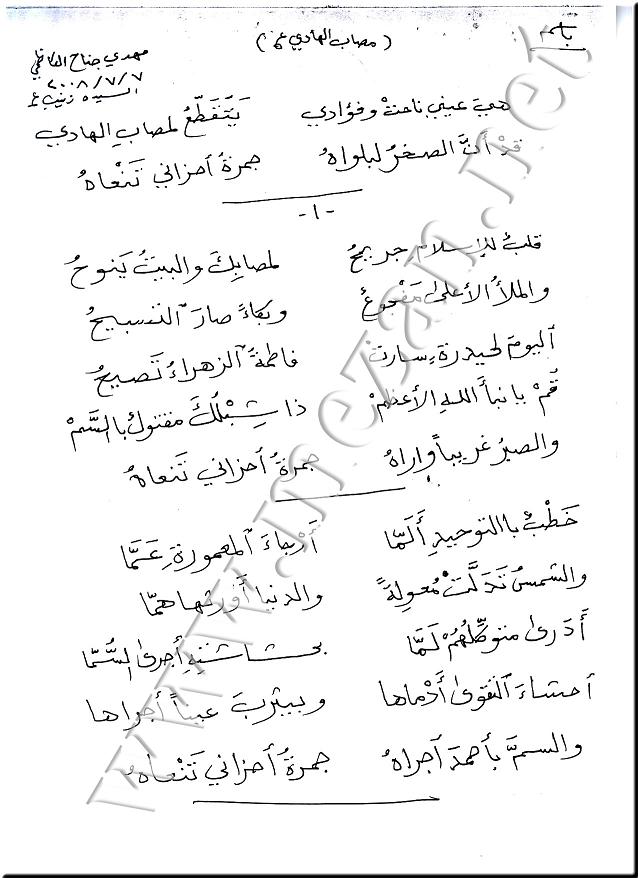 باسم
( مصاب الهادي ع )
مهدي جناح الكاظمي
٢٠٠٨/٧/٧
السيدة زينب ع
هيَ عيني ناحتْ وفؤادي يَتَقَطَّعُ لمصابِ الهادي
قدْ أنَّ الصخرُ لبلواهُ جمرةُ أحزاني تَنْعاهُ
-١-
قلبٌ للإسلامِ جريحُ لمصابِكَ والبيتُ يَنوحُ
والملأُ الأعلى مَفْجوعٌ وبكاءً صارَ التسبيحُ
اليومَ لحيدرةٍ سارت فاطمةُ الزهراءُ تَصيحُ
قُمْ يا نبأَ اللهِ الأعظمْ ذا شِبْلُكَ مقتولٌ بالسَّمْ
والصبرُ غريباً واراهُ جمرةُ أحزاني تَنعاهُ
خَطْبٌ باالتوحيدِ أَلَمّا أَرجاءَ المعمورةِ عَمّا
والشمسُ تَدَلَّتْ مُعوِلةً والدنيا أَورثها همّا
أَدَرى متوكِّلُهُمْ لَمّا بحشاشتهِ أجرى السُّمّا
أحشاءَ التقوى أَدْماها وبيثربَ عيناً أجراها
والسمَّ بأحمدَ أجراهُ جمرةُ أحزاني تَنْعاهُ
www.mezan.net